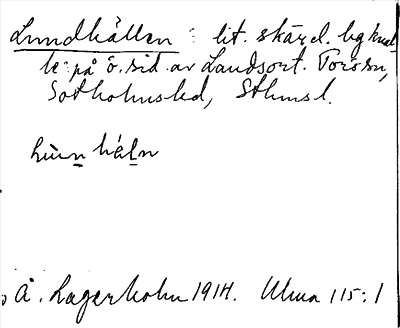 Lundhällen : lit. skärd. bg knal-
le på ö. sid. av Landsort. Torö sn,
Sotholmsled, Sthmsl.
hùnhäln
Å. Lagerholm 1914. Ulma 115:1